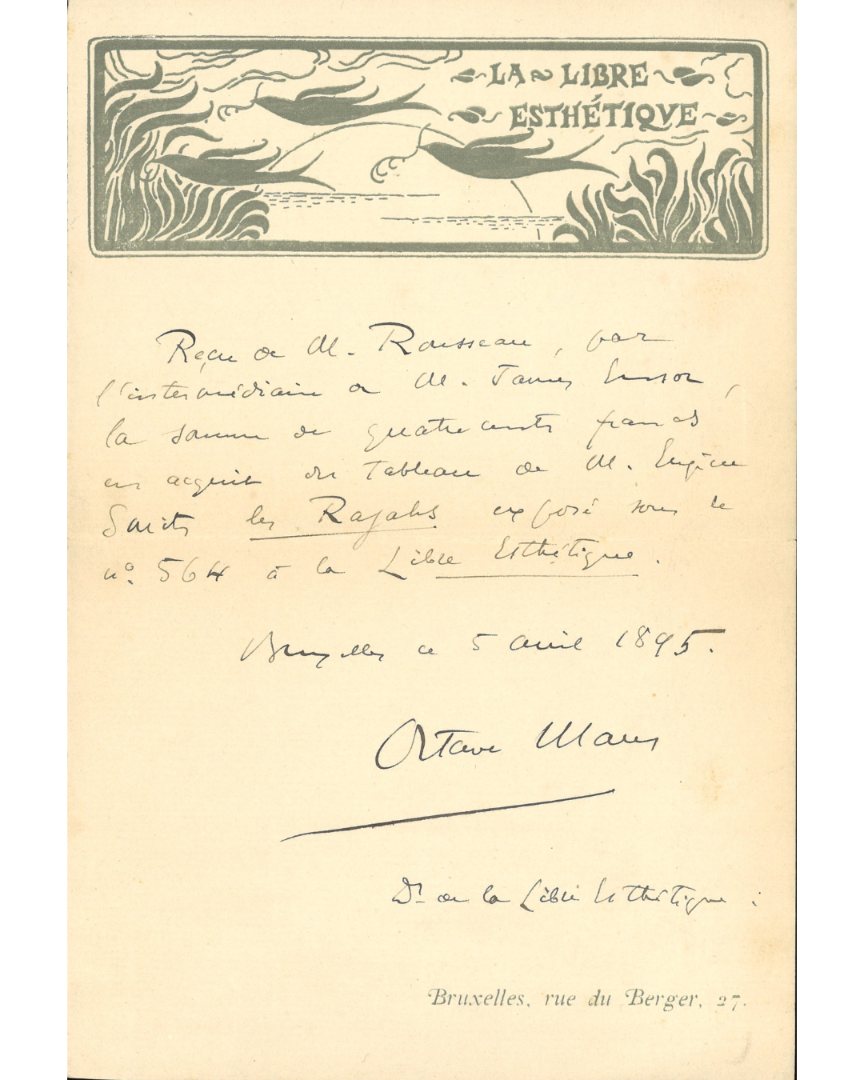 LA LIBRE
ESTHÉTIQVE
Reçu de M. Rousseau, par
l'intermédiaire de M. James Ensor,
la somme de quatre cents francs
en acquit du Tableau de M. Eugène
Smits les Rajahs exposé sous le
n° 564 à la Libre Esthétique.
Bruxelles ce 5 avril 1895.
Octave Maus
Dr de la Libre Esthétique.
Bruxelles, rue du Berger, 27.